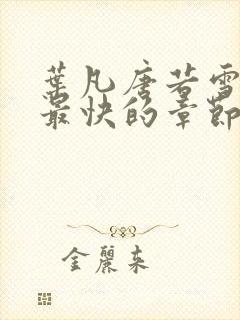 葉凡唐若雪
最快的章節
金麗來